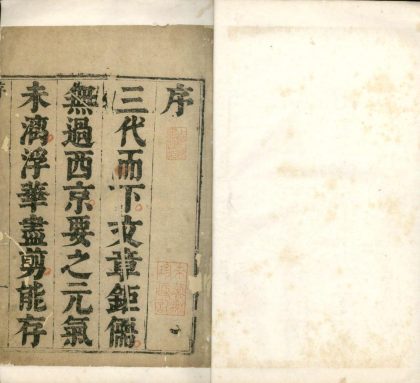 序
三代而下文章鉅儒
無過西京要之元氣
未漓浮華盡剪能存